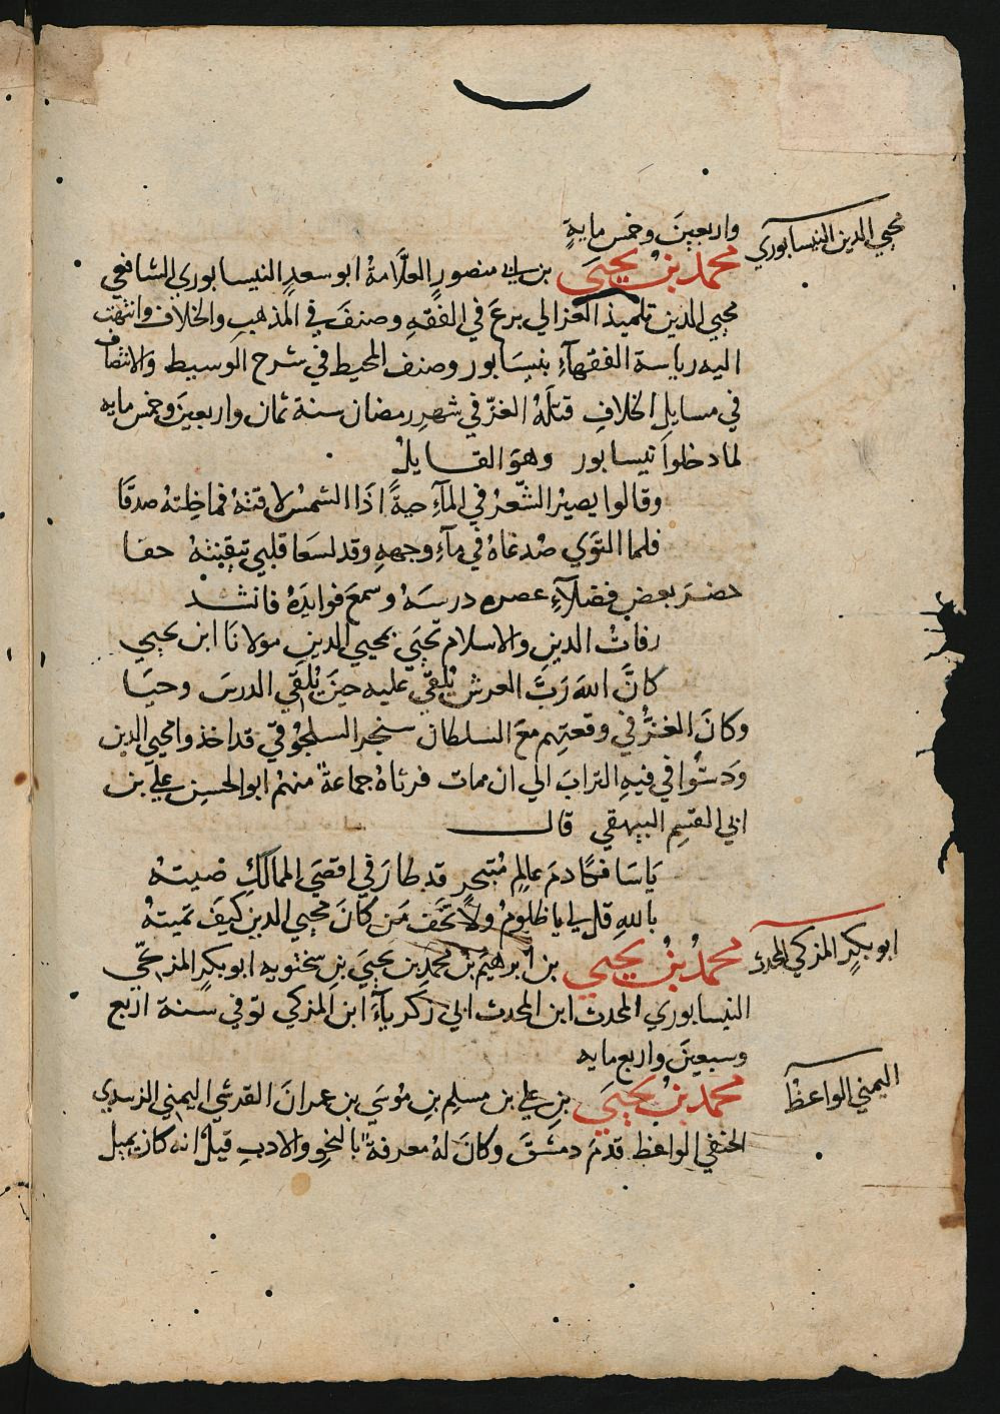 واربعينَ وخمس مايةٍ
محيي الدين النيسابوري
محمدُ بنُ يحيَى بن ابي منصورٍ العلَّامةُ ابو سعدٍ النيسابوري الشافعي
محيي الدين تلميذ الغزالي برعَ في الفقهِ وصنفَ في المذهبِ والخلاف وانتهت
اليه رياسة الفقهآءِ بنيسَابور وصنف المحيط في شرح الوسيط والانتصاف
في مسايلِ الخلافِ قتلَهُ الغزّ في شهرِ رمضان سنة ثمان واربعينَ وخمس مايه
لما دخلوا نيسابور وهوَ القايلُ
وقالوا يصيرُ الشَّعرُ في المآءِ حيةً اذَا الشمسُ لاقتهُ فما خِلتهُ صدقَا
فلما التوَي صُدغاهُ في مآءِ وجههِ وقد لسَعا قلبي تيقنتهُ حقا
حضرَ بعض فضلآءِ عصره درسَهُ وسمعَ فوايدَهُ فانشد
رفاتُ الدينِ والاسلام تحيَي بمحيي الدينِ مولانَا ابن يحيي
كانَّ اللهَ رَبَّ العرش يُلقي عليه حينَ يُلقي الدرسَ وحيَا
وكانَ الغزُّ في وقعتِهم معَ السلطان سنجر السلجُوقي قد اخذوا محيي الدين
ودَسُّوا في فيهِ الترابَ الي ان مات فرثاهُ جماعةٌ منهم ابو الحسن علي بن
ابي القسمِ البيهقي قال
يَا سَافكًا دمَ عالمٍ مُتبحرٍ قد طارَ في اقصَي الممالكِ صيتهُ
باللهِ قل لي يا ظلومُ ولا تخَف مَن كانَ محيي الدين كيفَ تميتهُ
ابو بكرٍ المزكي المحدث
محمدُ بنُ يحيي بن ابرهيم بن محمد بن يحيَي بنِ سختويه ابو بكرٍ المزكي
النيسابوري المحدث ابن المحدث ابي زكريآءَ ابن المزكي توفي سنة اربع
وسبعينَ واربع مايه
اليمني الواعظ
محمدُ بنُ يحيَي بنِ علي بن مسلم بنِ مُوسَي بن عمرانَ القرشي اليمني الزبيدي
الحنفي الواعظ قدمَ دمشقَ وكانَ لهُ معرفةٌ بالنحوِ والادبِ قيلَ انه كان يميل